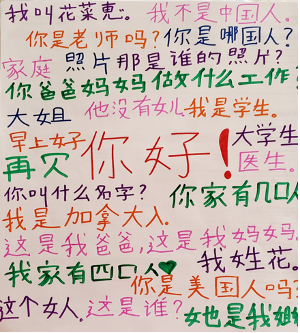 我叫花菜恵。 我不是中国人。
你是老师吗? 你是哪国人?
家庭 照片那是谁的照片?
你爸爸妈妈做什么工作?
大姐 他没有女儿 我是学生。
早上好 你好! 大学生
再见 医生。
你叫什么名字? 你家有几口人
我是加拿大人.
这是我爸爸,这是我妈妈
我家有四口人 我姓花。
你是美国人吗?
这个女人, 这是谁? 她也是我姐